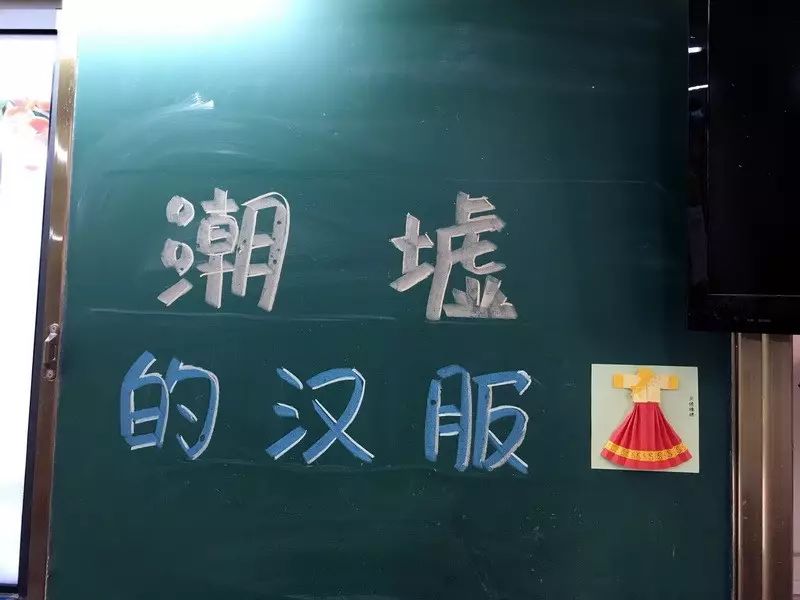 潮墟
的汉服